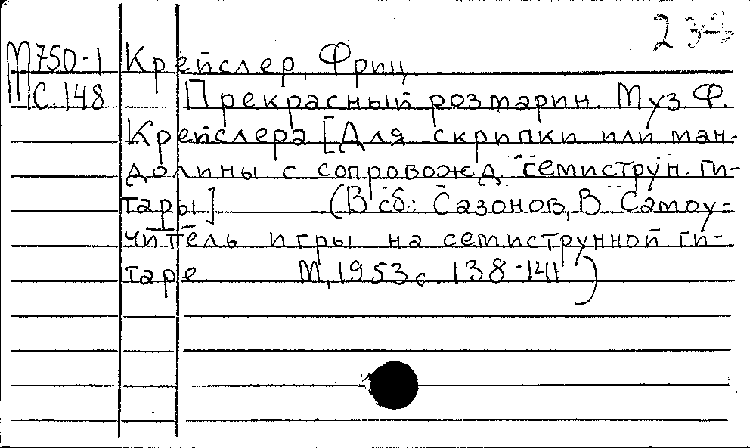 23-
М750-1 Крейслер, Фриц
С.148 Прекрасный розмарин. Муз. Ф.
Крейслера [Для скрипки или ман-
долины с сопровожд. семиструн. ги-
тары] (В сб.: Сазонов, В. Самоу-
читель игры на семиструнной ги-
таре М., 1953 с. 138-141)